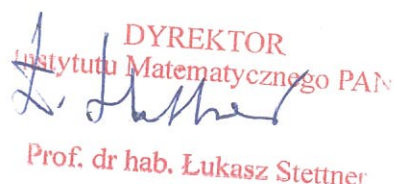 DYREKTOR
Instytutu Matematycznego PAN
Ł. Stettner
Prof. dr hab. Łukasz Stettner